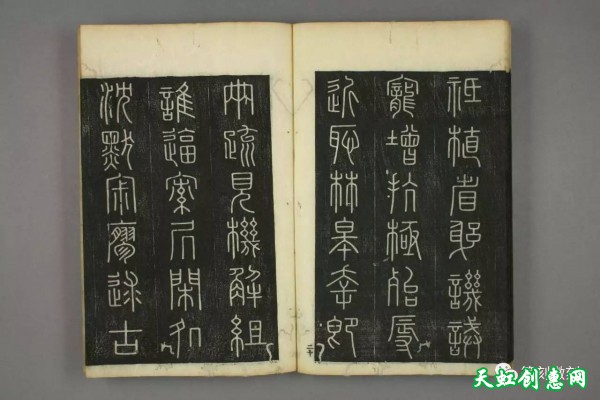 祗植省躬譏誡
寵增抗極殆辱
近恥林皋幸即
兩疏見機解組
誰逼索居閒處
沈默寂寥求古
二十
天虹创惠网